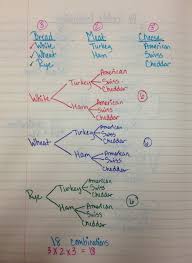 ③ ② ③
Bread Meat Cheese
✓ White Turkey American
✓ Wheat Ham Swiss
✓ Rye Cheddar
American
Turkey Swiss
Cheddar
White ⑥
American
Ham Swiss
Cheddar
American
Turkey Swiss
Cheddar
Wheat ⑥
American
Ham Swiss
Cheddar
American
Turkey Swiss
Cheddar
Rye ⑥
American
Ham Swiss
Cheddar
18 combinations
3 x 2 x 3 = 18